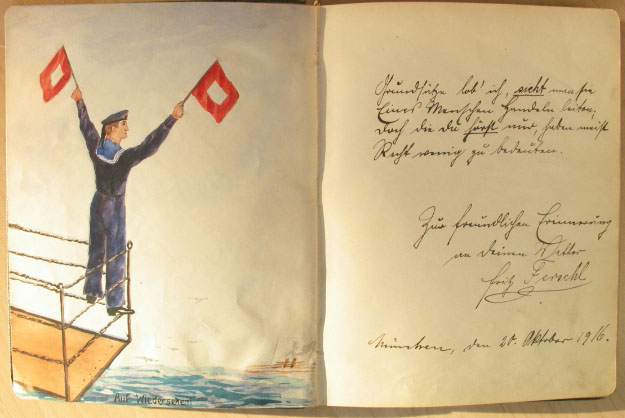 Auf Wiedersehen
Grundsätze lob' ich, sieht man sie
Eines Menschen Handeln leiten;
Doch die du hörst nur, haben meist
Recht wenig zu bedeuten.
Zur freundlichen Erinnerung
an deinen Vetter
Fritz
München, den 20. Oktober 1916.